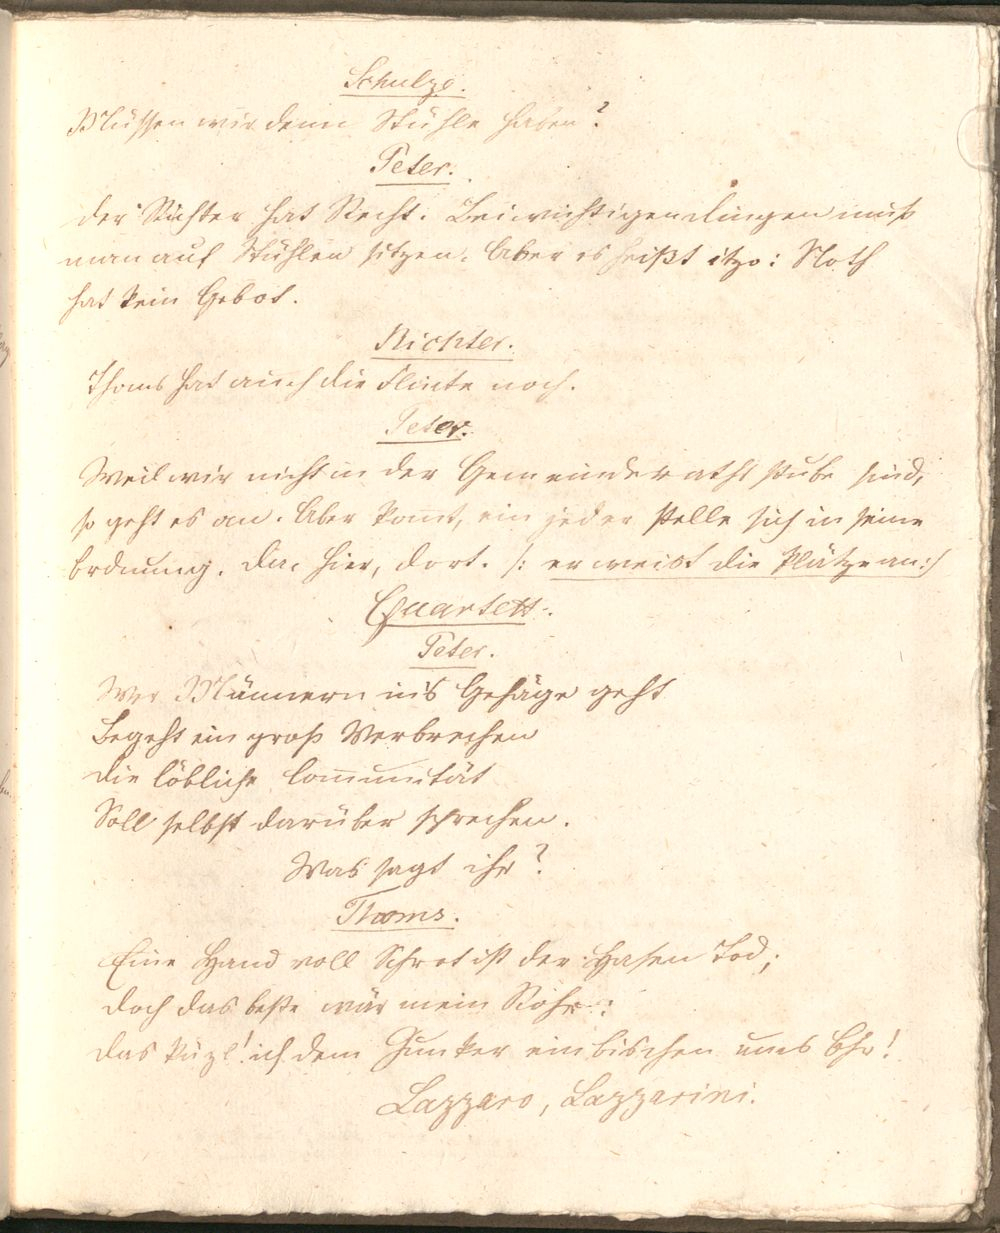 Schulze.
Müssen wir denn Stühle haben?
Peter.
der Richter hat Recht. Bei wichtigen dingen muß
man auf Stühlen sitzen. Aber es heißt itzo: Noth
hat kein Gebot.
Richter.
Thoms hat auch die Flinte noch.
Peter.
Weil wir nicht in der Gemeinderathsstube sind,
so geht es an. Aber komt, ein jeder stelle sich in seine
Ordnung. Da, hier, dort. /: er weist die Plätze an :/
Quartett.
Peter.
Wer Männern in's Gehäge geht
Begeht ein groß Verbrechen
die löbliche Comunität
Soll selbst darüber sprechen.
Was sagt ihr?
Thoms.
Eine Hand voll Schrot ist der Hasen Tod;
doch das beste wär mein Rohr:
das küzl' ich dem Junker ein bischen ums Ohr!
Lazzaro, Lazzarini.